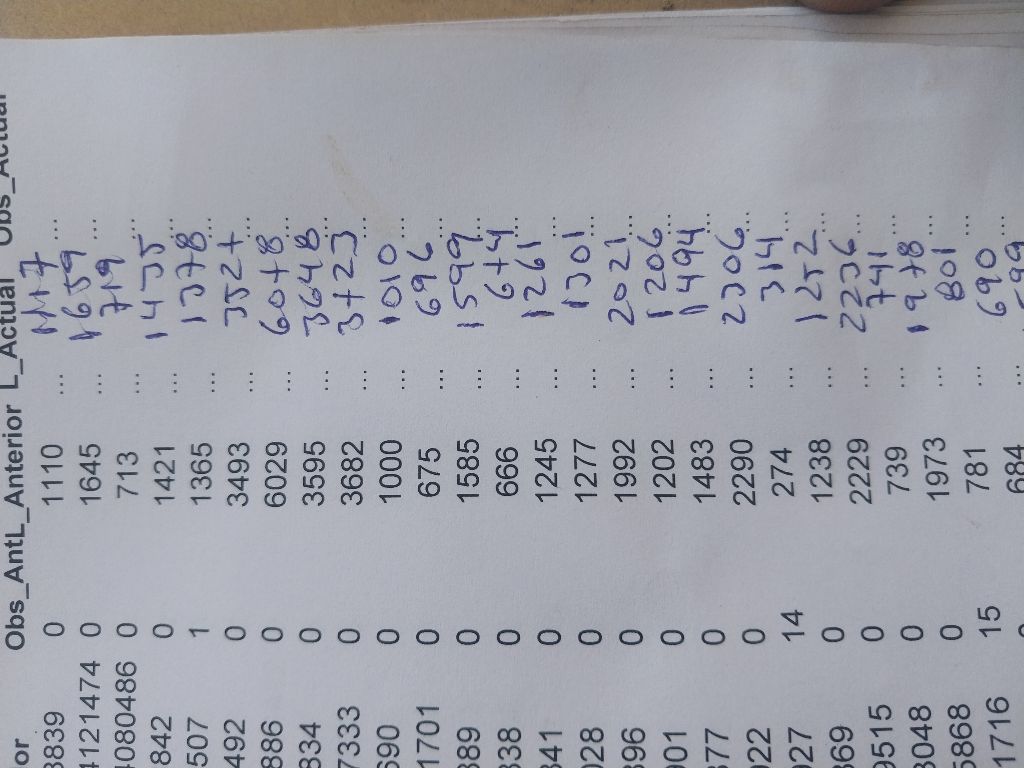 or Obs_AntL_Anterior L_Actual Obs_Actual
3839 0 1110 ... 1117 ...
41121474 0 1645 ... 1659 ...
4080486 0 713 ... 719
842 0 1421 ... 1435 ...
507 1 1365 ... 1378 ...
492 0 3493 ... 3527 ...
886 0 6029 ... 6078 ...
834 0 3595 ... 3648 ...
7333 0 3682 ... 3723 ...
690 0 1000 ... 1010 ...
1701 0 675 ... 696 ...
389 0 1585 ... 1599 ...
338 0 666 ... 674 ...
341 0 1245 ... 1261 ...
028 0 1277 ... 1301 ...
896 0 1992 ... 2021 ...
901 0 1202 ... 1206 ...
377 0 1483 ... 1494 ...
022 0 2290 ... 2306 ...
927 14 274 ... 314 ...
369 0 1238 ... 1252 ...
9515 0 2229 ... 2236 ...
3048 0 739 ... 741 ...
5868 0 1973 ... 1978 ...
1716 15 781 ... 801 ...
684 690